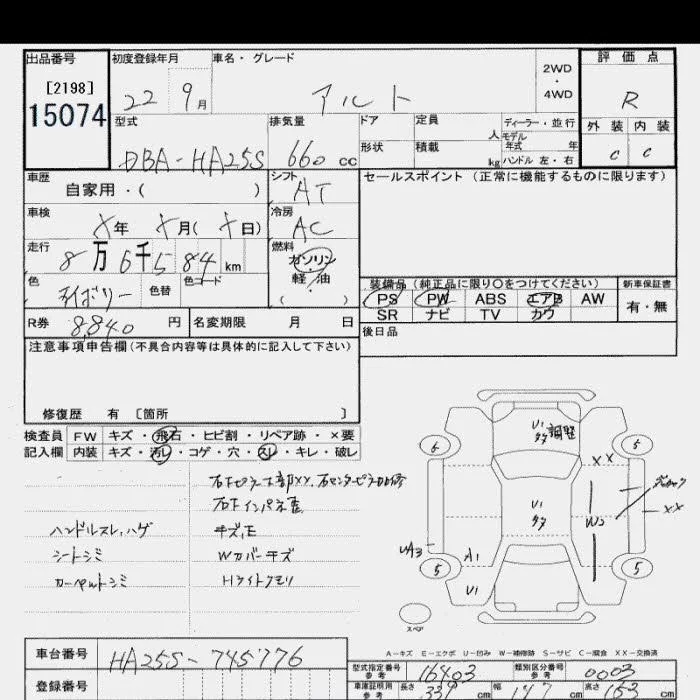 出品番号 初度登録年月 車名・グレード 2WD・4WD 評価点
[2198]
15074
22 9月 アルト R
型式 排気量 ドア 定員 人 ディーラー・並行 外装 内装
DBA-HA25S 660cc 形状 積載 kg モデル年式 年 ハンドル 左・右 C C
車歴 シフト セールスポイント(正常に機能するものに限ります)
自家用・( ) AT
車検 冷房
X年 X月(X日) AC
走行 燃料
8万6千584km ガソリン
軽・油
( )
色 色替 色コード 装備品(純正品に限り○をつけてください) 新車保証書
アイボリー PS PW ABS エアB AW 有・無
SR ナビ TV カワ
R券 8,840円 名変期限 月 日 後日品
注意事項申告欄(不具合内容等は具体的に記入して下さい)
修復歴 有 [箇所 ]
検査員 FW キズ・飛石・ヒビ割・リペア跡・×要
記入欄 内装 キズ・汚レ・コゲ・穴・スレ・キレ・破レ
右Fピラー下部XX、右センターピラー曲修
右Fインパネ歪
ハンドルスレ、ハゲ キズ、E
シートシミ Wカバーキズ
カーペットシミ Hライトクモリ
U1
タタ 調整
6 5
XX
U1
タタ W2
XX
UA3 A1
5 5
U1
スペア
A-キズ E-エクボ U-凹み W-補修跡 S-サビ C-腐食 XX-交換済
車台番号 HA25S-745776
登録番号
型式指定番号 参考 16403 類別区分番号 参考 0003
車庫証明用 参考 長さ 339cm 幅 147cm 高さ 153cm